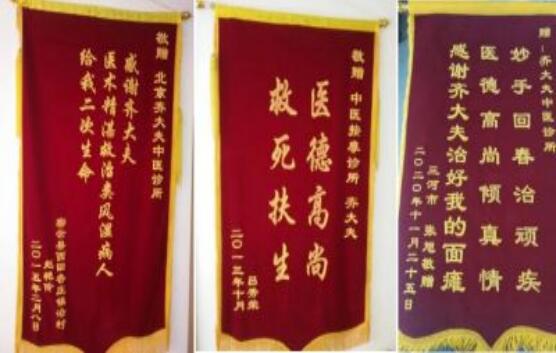 敬赠 北京齐大夫中医诊所
感谢齐大夫
医术精湛救治类风湿病人
给我二次生命
二〇一五年二月八日
敬赠 中医按摩诊所 齐大夫
医德高尚
救死扶生
吕秀荣
二〇一三年十月
赠:齐大夫中医诊所
妙手回春治顽疾
医德高尚倾真情
感谢齐大夫治好我的面瘫
三河市 张旭敬赠
二〇二〇年十一月二十五日